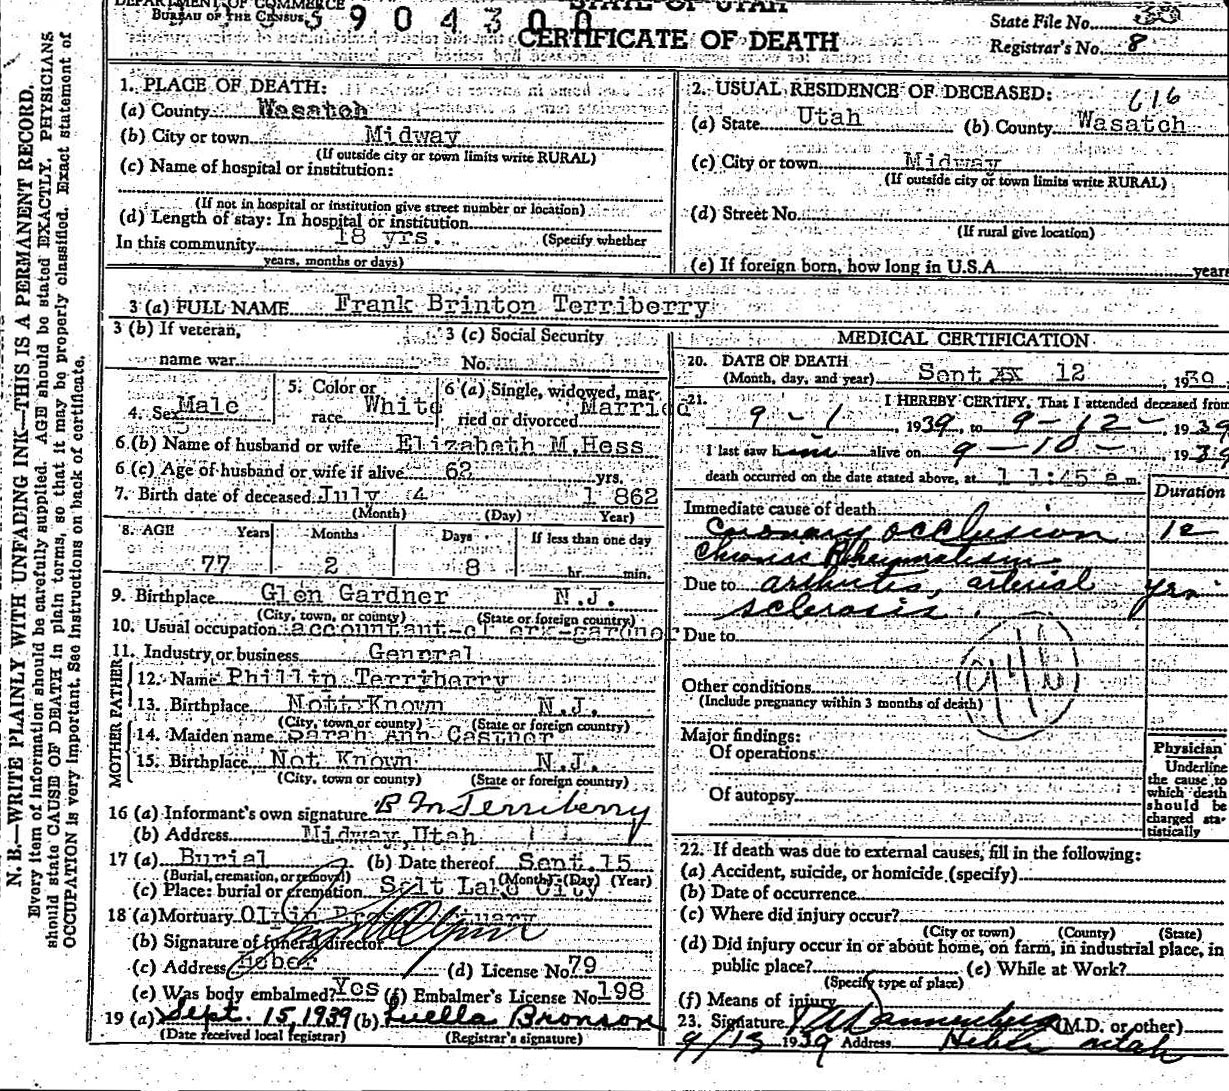 DEPARTMENT OF COMMERCE
BUREAU OF THE CENSUS
STATE OF UTAH
S 9 0 4 3 0 0
CERTIFICATE OF DEATH
State File No.
Registrar's No. 8
N. B.—WRITE PLAINLY WITH UNFADING INK—THIS IS A PERMANENT RECORD.
Every item of information should be carefully supplied. AGE should be stated EXACTLY. PHYSICIANS
should state CAUSE OF DEATH in plain terms, so that it may be properly classified. Exact statement of
OCCUPATION is very important. See Instructions on back of certificate.
1. PLACE OF DEATH:
(a) County Wasatch
(b) City or town Midway
(If outside city or town limits write RURAL)
(c) Name of hospital or institution:
(If not in hospital or institution give street number or location)
(d) Length of stay: In hospital or institution
In this community 18 yrs. (Specify whether
years, months or days)
2. USUAL RESIDENCE OF DECEASED:
616
(a) State Utah (b) County Wasatch
(c) City or town Midway
(If outside city or town limits write RURAL)
(d) Street No.
(If rural give location)
(e) If foreign born, how long in U.S.A. years
3 (a) FULL NAME Frank Brinton Terriberry
3 (b) If veteran,
name war
3 (c) Social Security
No.
4. Sex Male
5. Color or
race White
6 (a) Single, widowed, mar-
ried or divorced Married
6.(b) Name of husband or wife Elizabeth M.Hess
6 (c) Age of husband or wife if alive 62 yrs.
7. Birth date of deceased July 4 1 862
(Month) (Day) Year)
8. AGE Years Months Days If less than one day
77 2 8 hr. min.
9. Birthplace Glen Gardner N.J.
(City, town, or county) (State or foreign country)
10. Usual occupation accountant-clerk-gardner
11. Industry or business General
FATHER
12. Name Phillip Terriberry
13. Birthplace Not Known N.J.
(City, town or county) (State or foreign country)
MOTHER
14. Maiden name Sarah Ann Castner
15. Birthplace Not Known N.J.
(City, town or county) (State or foreign country)
16 (a) Informant's own signature B M Terriberry
(b) Address Midway,Utah
17 (a) Burial (b) Date thereof Sept.15
(Burial, cremation, or removal) (Month) (Day) (Year)
(c) Place: burial or cremation Salt Lake City
18 (a) Mortuary Olpin Bros Mortuary
(b) Signature of funeral director
(c) Address Heber (d) License No. 79
(e) Was body embalmed? Yes (f) Embalmer's License No. 198
19 (a) Sept. 15, 1939 (b) Luella Bronson
(Date received local registrar) (Registrar's signature)
MEDICAL CERTIFICATION
20. DATE OF DEATH
(Month, day, and year) Sept xx 12, 1939
21. I HEREBY CERTIFY, That I attended deceased from
9 - 1, 1939, to 9 - 12 -, 1939
I last saw him alive on 9 - 10 - 1939
death occurred on the date stated above, at 1 1:45 a m.
Duration
Immediate cause of death
Coronary occlusion
Chronic Rheumatism
Due to arthritis, arterial yrs
sclerosis
Due to
94b
Other conditions
(Include pregnancy within 3 months of death)
Major findings:
Of operations
Of autopsy
Physician
Underline
the cause to
which death
should be
charged sta-
tistically
22. If death was due to external causes, fill in the following:
(a) Accident, suicide, or homicide (specify)
(b) Date of occurrence
(c) Where did injury occur?
(City or town) (County) (State)
(d) Did injury occur in or about home, on farm, in industrial place, in
public place? (e) While at Work?
(Specify type of place)
(f) Means of injury
23. Signature (M.D. or other)
9/13 1939 Address Heber Utah